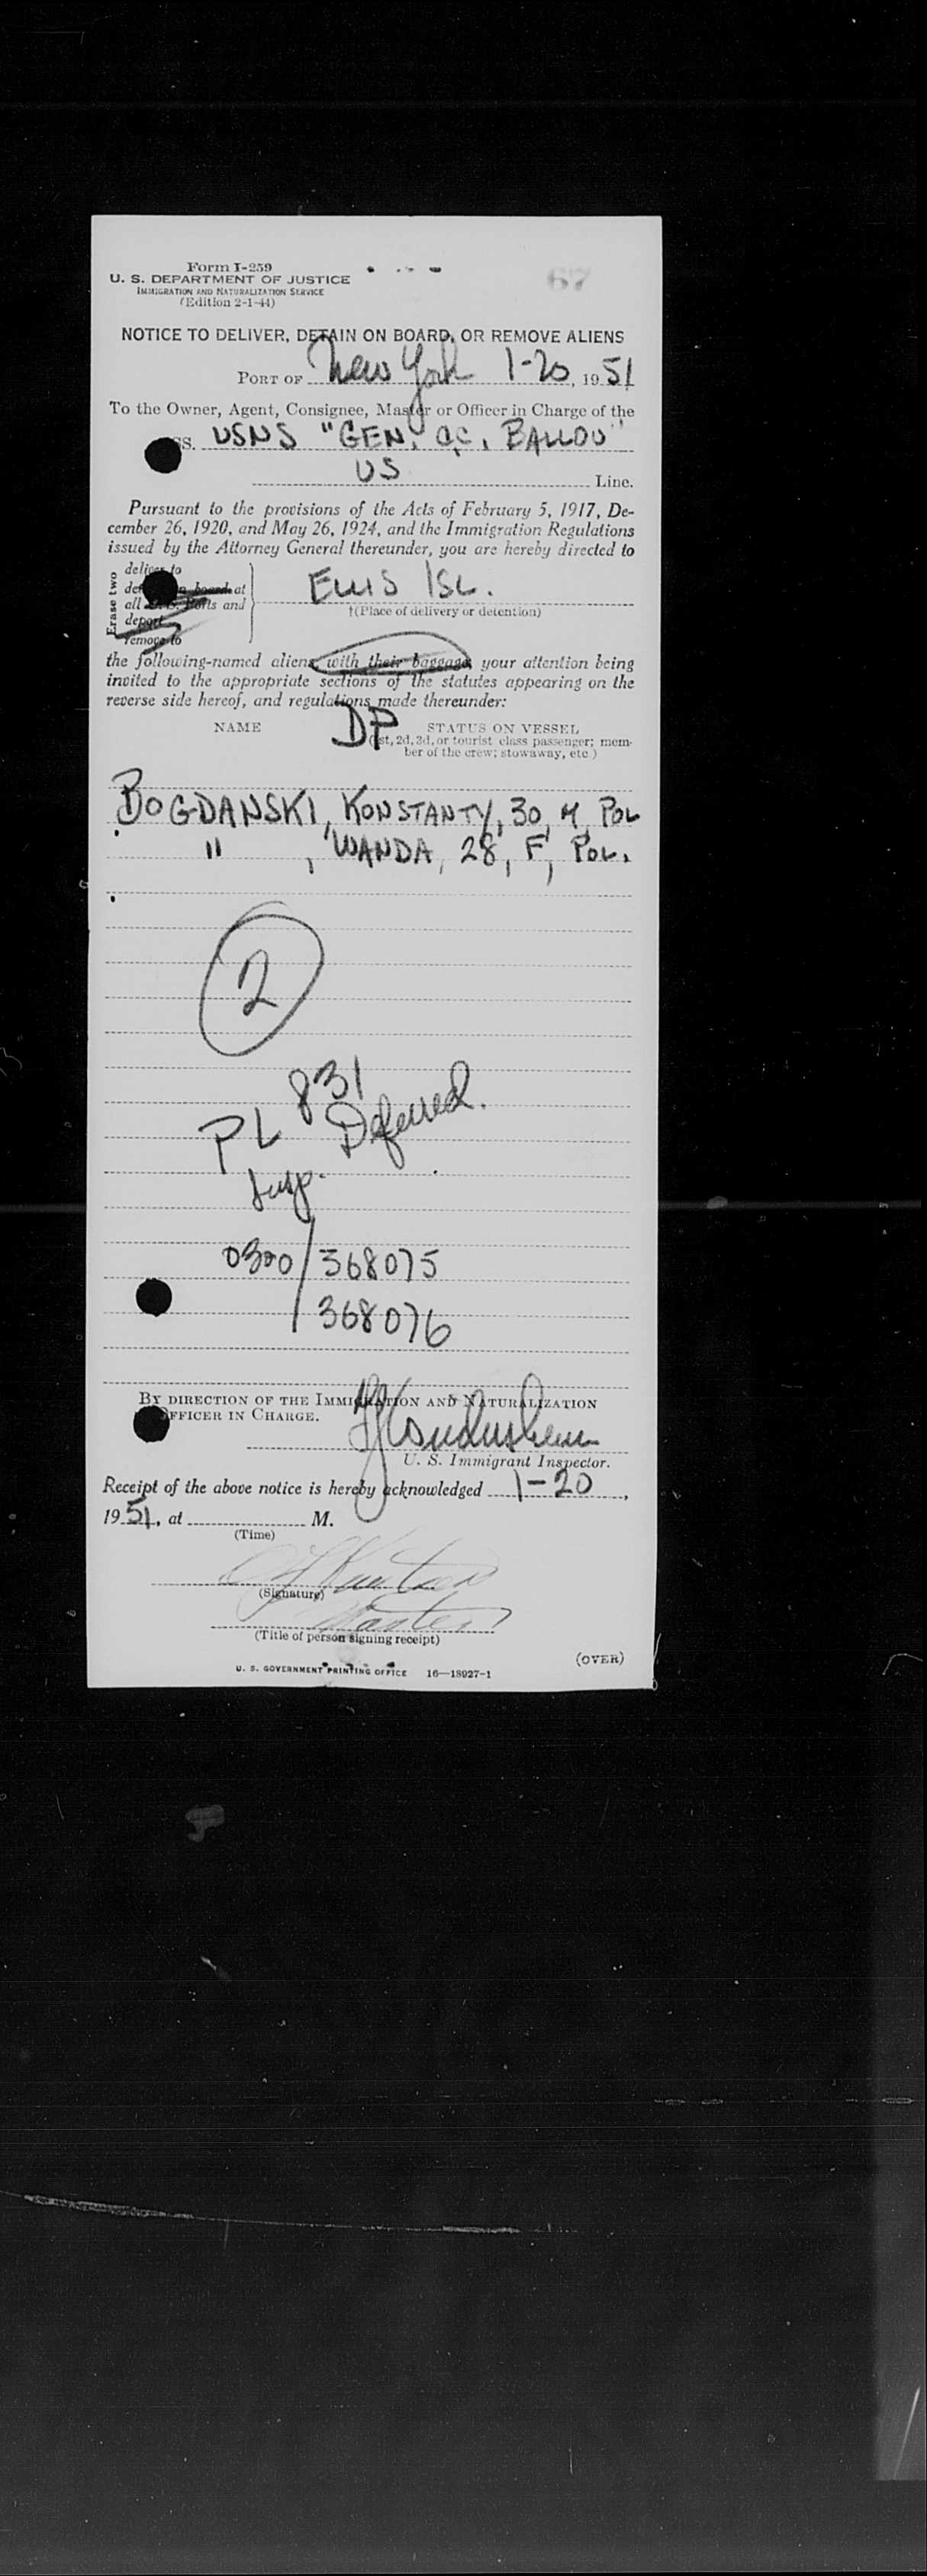 Form I-259
U. S. DEPARTMENT OF JUSTICE
IMMIGRATION AND NATURALIZATION SERVICE
(Edition 2-1-44)
67
NOTICE TO DELIVER, DETAIN ON BOARD, OR REMOVE ALIENS
PORT OF New York 1-20, 1951
To the Owner, Agent, Consignee, Master or Officer in Charge of the
SS. USNS "GEN. C.C. BALLOU"
US Line.
Pursuant to the provisions of the Acts of February 5, 1917, De-
cember 26, 1920, and May 26, 1924, and the Immigration Regulations
issued by the Attorney General thereunder, you are hereby directed to
Erase two
deliver to
board at
all U. S. Ports and
deport
remove to
ELLIS ISL.
†(Place of delivery or detention)
the following-named aliens, with their baggage, your attention being
invited to the appropriate sections of the statutes appearing on the
reverse side hereof, and regulations made thereunder:
NAME DP STATUS ON VESSEL
(1st, 2d, 3d, or tourist class passenger; mem-
ber of the crew; stowaway, etc.)
BOGDANSKI, KONSTANTY, 30, M, POL
" , WANDA, 28, F, POL.
2
PL 831
Insp. Deferred.
0300/368075
368076
BY DIRECTION OF THE IMMIGRATION AND NATURALIZATION
OFFICER IN CHARGE.
U. S. Immigrant Inspector.
Receipt of the above notice is hereby acknowledged 1-20,
1951, at M.
(Time)
(Signature)
Master
(Title of person signing receipt)
(OVER)
U. S. GOVERNMENT PRINTING OFFICE 16—18927-1